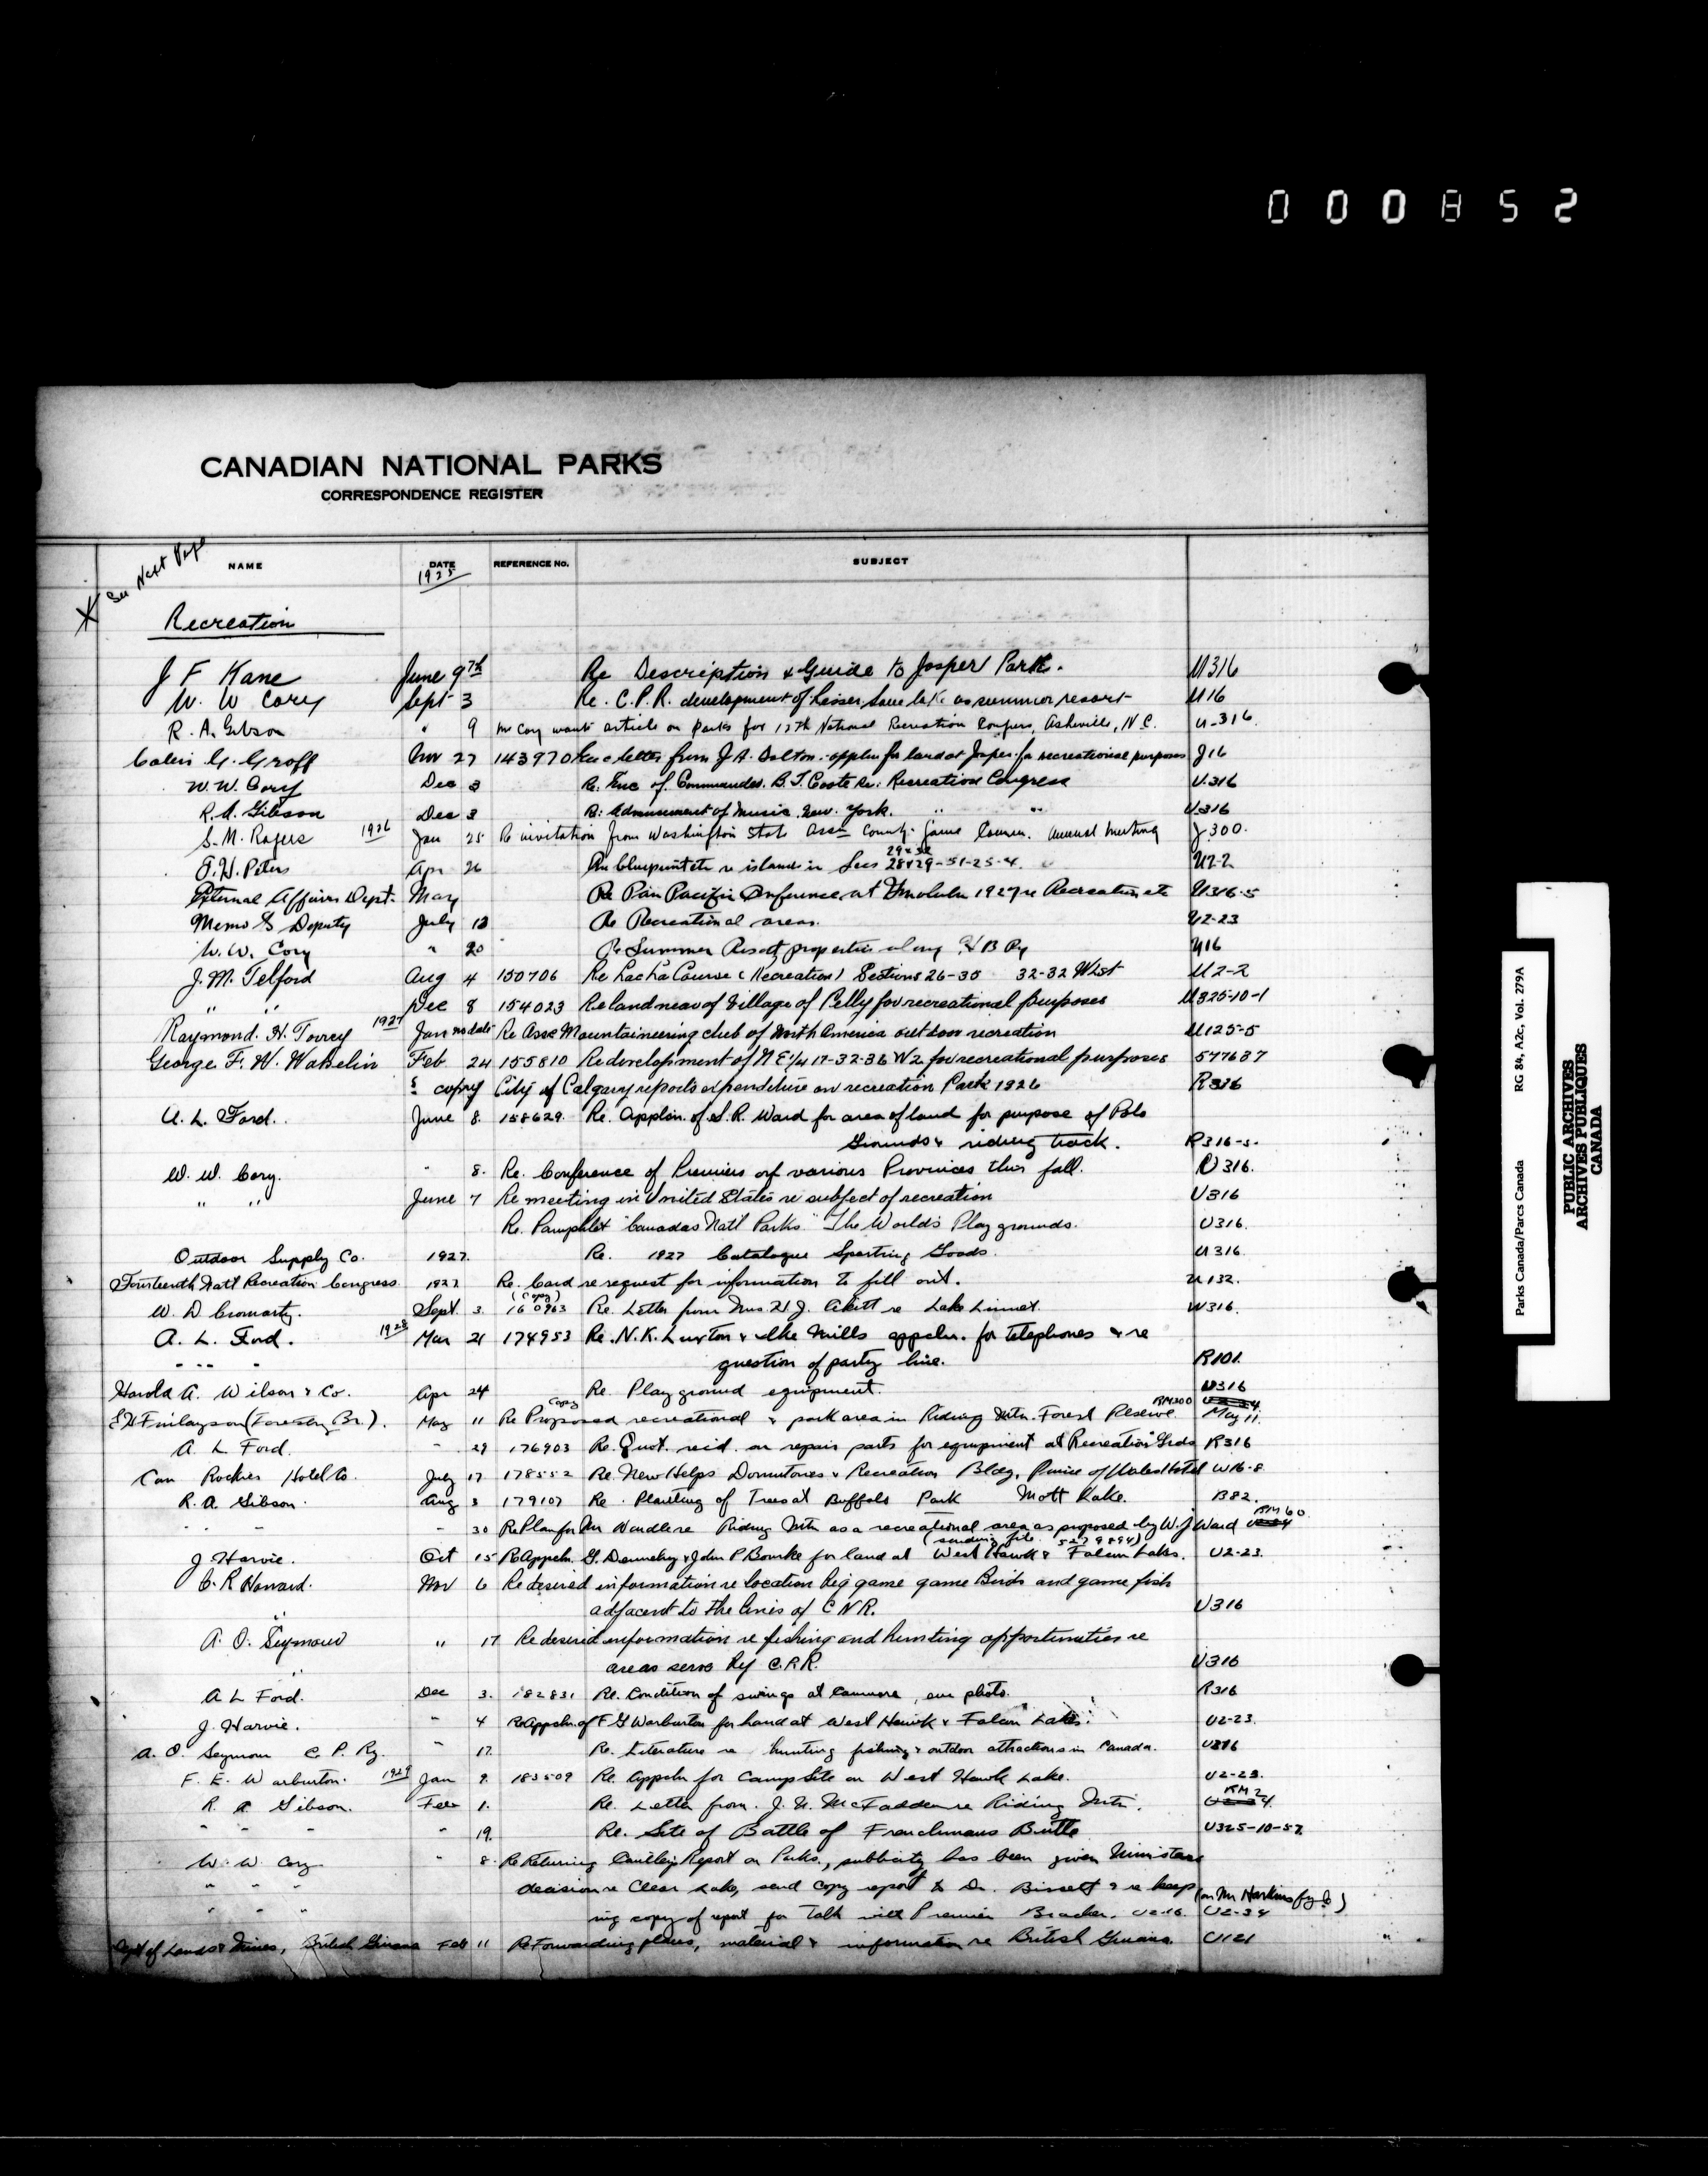 000852
CANADIAN NATIONAL PARKS
CORRESPONDENCE REGISTER
See Next Page
NAME DATE REFERENCE No. SUBJECT
1925
Recreation
J F Kane June 9th Re Description & Guide to Jasper Park. U316
W. W Cory Sept 3 Re. C.P.R. development of Lesser Slave lake as summer resort U16
R. A. Gibson " 9 Mr Cory wants article on parks for 12th National Recreation Congress, Asheville, N.C. U-316.
Colin G. Groff Nov 27 143970 Enc letter from J A. Dalton - appln for land at Jasper for recreational purposes J16
W. W. Cory Dec 3 Re. Enc of Commander. B. T. Coote Re: Recreation Congress U.316
R. A. Gibson Dec 3 Re: Advancement of Music New. York. " " U316
S. M. Rogers 1926 Jan 25 Re invitation from Washington State Assn County Game Comm. annual meeting J300.
F. H. Peters Apr 26 blueprint etc re island in Secs 28&29-51-25-4. U2-2
29&32
External Affairs Dept. May Re Pan Pacific Conference at Honolulu 1927 re Recreation etc U316-5
Memo to Deputy July 13 Re Recreational areas. U2-23
W. W. Cory " 20 Re Summer Resort properties along H B Ry U16
J. M. Telford Aug 4 150706 Re Lac La Course (Recreation) Sections 26-35 32-32 W1st U2-2
" " Dec 8 154023 Re land near of Village of Pelly for recreational purposes U325-10-1
Raymond. H. Torrey 1927 Jan no date Re Asse Mountaineering club of North America outdoor recreation U125-5
George F. W. Wakelin Feb 24 155810 Re development of N E 1/4 17-32-36 W2 for recreational purposes 577687
copy City of Calgary reports expenditure on recreation Park 1926 R316
A. L. Ford. June 8. 158629. Re. Appln. of S. R. Ward for area of land for purpose of Polo
Grounds & riding track. R316-5.
W. W. Cory. " 8. Re. Conference of Premiers of various Provinces this fall. U316.
" " June 7 Re meeting in United States re subject of recreation U316
Re. Pamphlet "Canadas Nat'l Parks" "The World's Play grounds. U316.
Outdoor Supply Co. 1927. Re. 1927 Catalogue Sporting Goods. U316.
Fourteenth Nat'l Recreation Congress. 1927 Re. Card re request for information to fill out. U132.
(Copy)
W. D Cromarty. Sept. 3. 160963 Re. Letter from Mrs H. J. Akitt re Lake Linnet. W316.
A. L. Ford. 1928 Mar 21 174953 Re. N. K. Luxton & Ike Mills appln. for telephones & re
" " " question of party line. R101.
Harold A. Wilson & Co. Apr 24 Re. Play ground equipment. U316
E H Finlayson (Forestry Br.). May 11 Re Proposed recreational & park area in Riding Mtn. Forest Reserve. RM200 U2-24 May 11.
Copy
A. L Ford. " 29 176903 Re. Quot. recd. on repair parts for equipment at Recreation Grds R316
Can Rockies Hotel Co. July 17 178552 Re. New Helps Dormitories & Recreation Bldg, Prince of Wales Hotel W16-8
R. A. Gibson. Aug 3 179107 Re. Planting of Trees at Buffalo Park Mott Lake. B82.
" " " 30 Re Plan for Mr Wardle re Riding Mtn as a recreational area as proposed by W. J Ward RM60
(sending file. 5279894)
J. Harvie. Oct 15 Re Appln. G. Dennehy & John P Bourke for land at West Hawk & Falcon Lakes. U2-23.
C. R Howard. Nov 6 Re desired information re location big game game Birds and game fish
adjacent to the lines of C N R. U316
A. O. Seymour " 17 Re desired information re fishing and hunting opportunities re
areas serve by C.P.R. U316
A L Ford. Dec 3. 182831 Re. Condition of swings at Canmore, enc photo. R316
J. Harvie. " 4 Re Appln of F G Warburton for land at West Hawk & Falcon Lakes. U2-23.
A. O. Seymour C. P. Ry. " 17. Re. Literature re hunting fishing & outdoor attractions in Canada. U316
F. E. Warburton. 1929 Jan 9. 183509 Re. Appln for Camp Site on West Hawk Lake. U2-23.
R. A. Gibson. Feb 1. Re. Letter from. J. N. McFadden re Riding Mtn. RM2 U2-24
" " " " 19. Re. Site of Battle of Frenchmans Butte U325-10-57
W. W. Cory " 8. Re Returning Cautley Report on Parks., publicity has been given Ministers
" " " decision re Clear Lake, send copy report to Dr. Bissett & re keep
" " " ing copy of report for Talk with Premier Bracken. U2-16. U2-34 (on Mr Harkins fyle)
Dept of Lands & Mines, British Guiana Feb 11 Re Forwarding plans, material & information re British Guiana U121
Parks Canada/Parcs Canada RG 84, A2c, Vol. 279A
PUBLIC ARCHIVES
ARCHIVES PUBLIQUES
CANADA